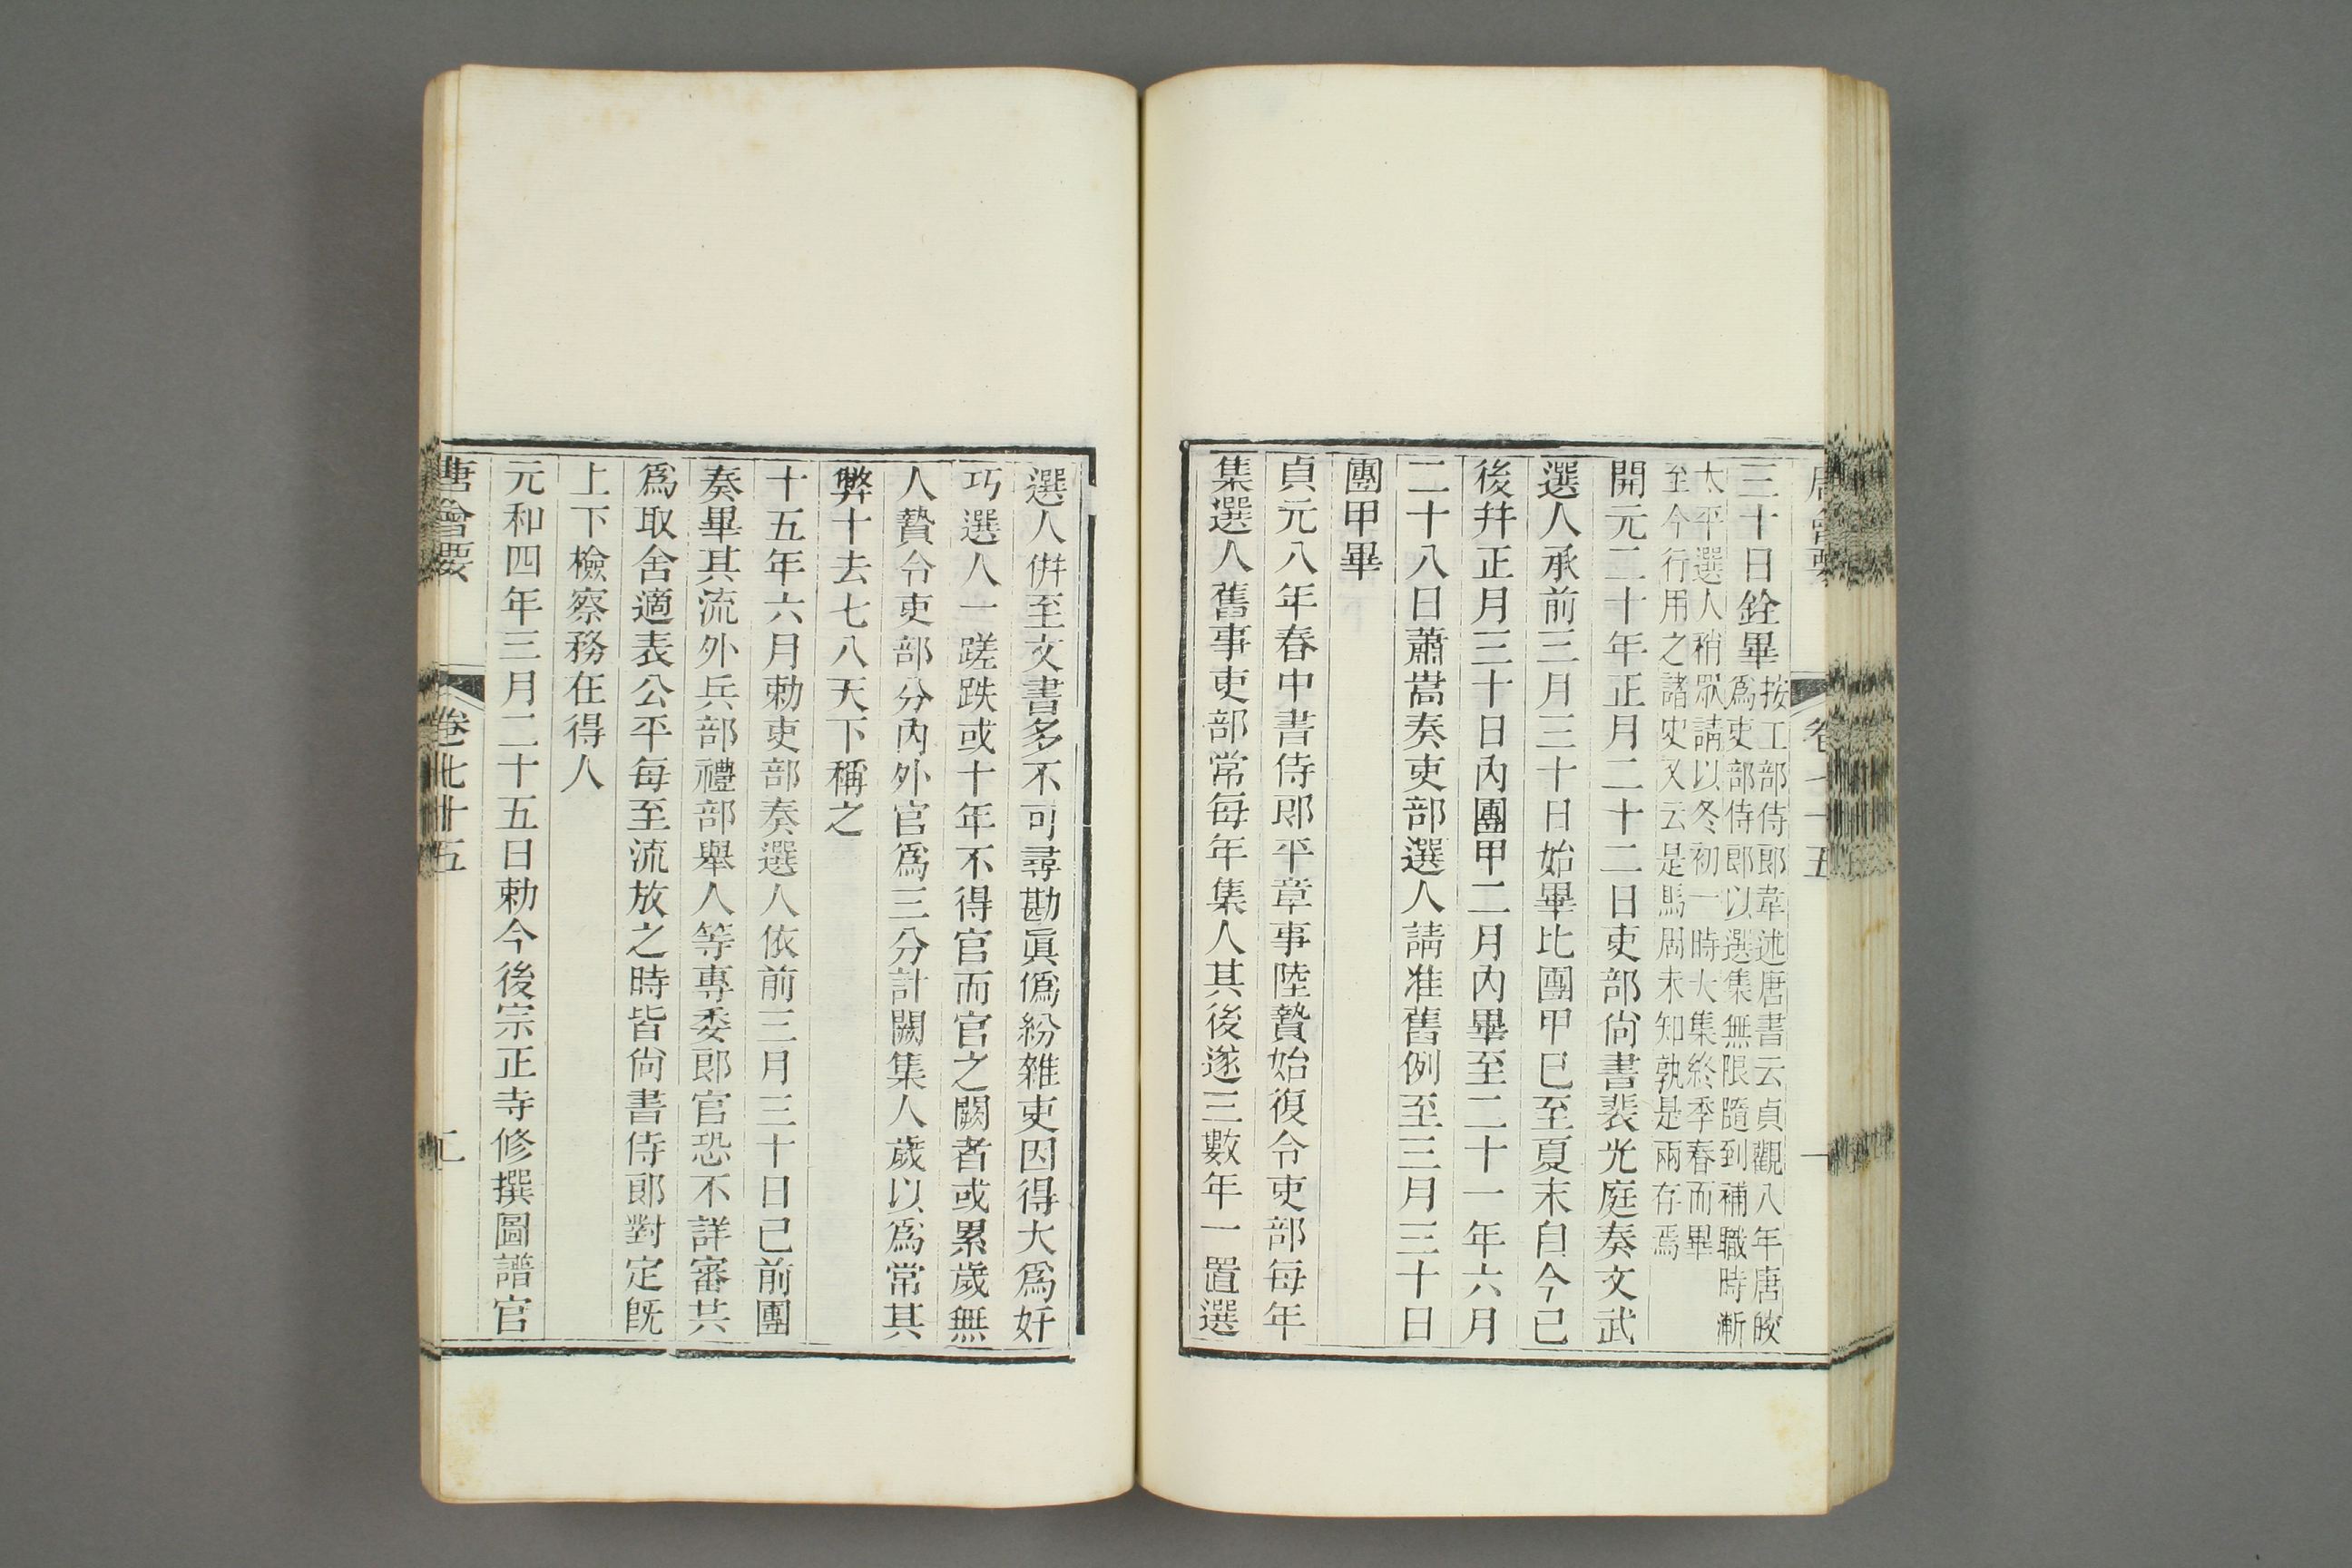 唐會要　卷七十五
三十日銓畢按工部侍郎韋述唐書云貞觀八年唐皎
爲吏部侍郎以選集無限隨到補職時漸
太平選人稍眾請以冬初一時大集終季春而畢
至今行用之諸史又云是馬周未知孰是兩存焉
開元二十年正月二十二日吏部尙書裴光庭奏文武
選人承前三月三十日始畢比團甲已至夏末自今已
後并正月三十日內團甲二月內畢至二十一年六月
二十八日蕭嵩奏吏部選人請准舊例至三月三十日
團甲畢
貞元八年春中書侍郎平章事陸贄始復令吏部每年
集選人舊事吏部常每年集人其後遂三數年一置選
選人併至文書多不可尋勘眞僞紛雜吏因得大爲奸
巧選人一蹉跌或十年不得官而官之闕者或累歲無
人贄令吏部分內外官爲三分計闕集人歲以爲常其
弊十去七八天下稱之
十五年六月勅吏部奏選人依前三月三十日已前團
奏畢其流外兵部禮部舉人等專委郎官恐不詳審共
爲取舍適表公平每至流放之時皆尙書侍郎對定旣
上下檢察務在得人
元和四年三月二十五日勅今後宗正寺修撰圖譜官
唐會要　卷七十五